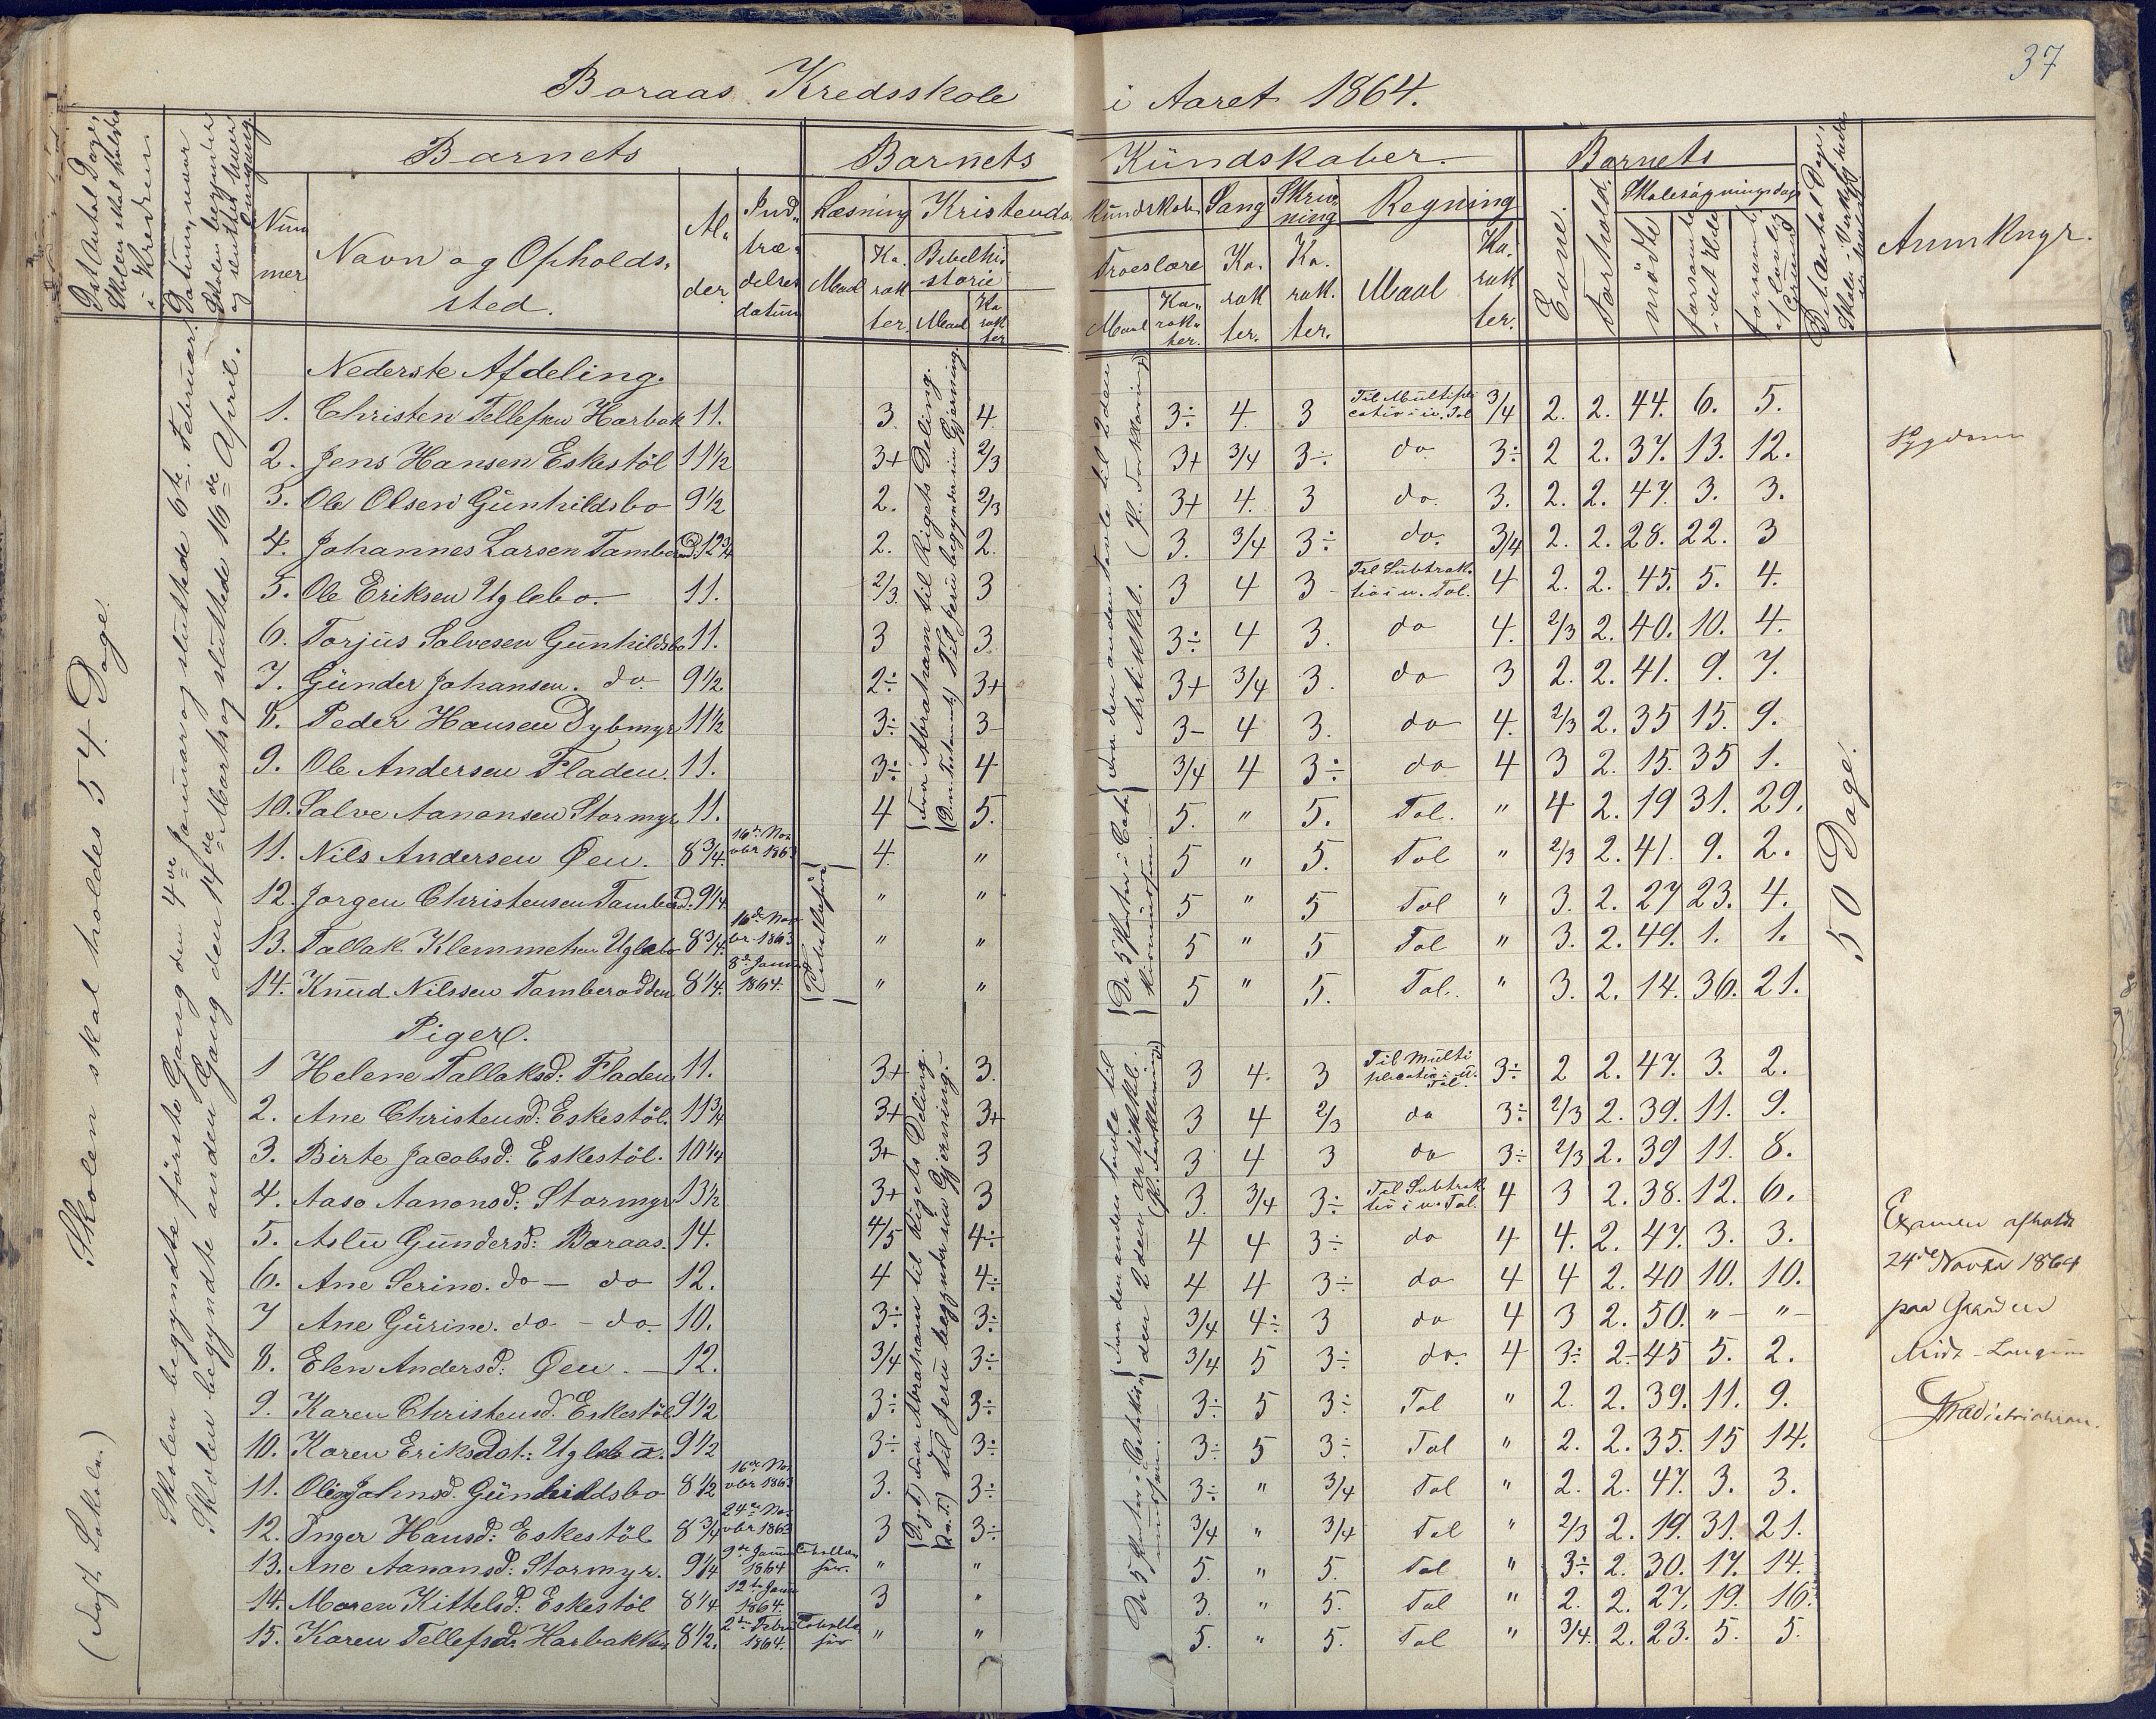 37
Boraas Kredsskole i Aaret 1864.
Det Antal Dage, Skolen skal holdes i Kredsen
Datum, naar Skolen begynder og sluttes hver Omgang
Barnets
Nummer
Navn og Opholdssted.
Alder.
Indtrædelsesdatum
Barnets Kundskaber.
Læsning
Maal
Karakter.
Kristendomskundskab
Bibelhistorie
Maal
Karakter
Troeslære
Maal
Karakter.
Sang
Karakter.
Skrivning
Karakter.
Regning
Maal
Karakter.
Barnets
Evne.
Forhold.
Skolesøgningsdage
mødte
forsømte i det Hele
forsømte af lovlig Grund
Det Antal Dage, Skolen i Virkeligheden er holdt
Anmkngr.
Skolen skal holdes 54 Dage.
(Fast Lokale)
Skolen begyndte første Gang den 4de Januar og sluttede 6te Februar.
Skolen begyndte anden Gang den 14de Marts og sluttede 16de April.
Nederste Afdeling.
1. Christen Tellefsen Harbak 11. 3 4 3÷ 4 3 Til Multiplication i u. Tal 3/4 2. 2. 44. 6. 5.
2. Jens Hansen Eskestöl 11 1/2 3+ 2/3 3+ 3/4 3÷ do 3÷ 2 2. 37. 13. 12.
Sygdom
3. Ole Olsen Gunhildsbo 9 1/2 2. 2/3 3+ 4. 3 do. 3. 2. 2. 47. 3. 3.
4. Johannes Larsen Tamberod. 12 3/4 2. 2. 3. 3/4 3÷ do. 3/4 2. 2. 28. 22. 3
5. Ole Eriksen Uglebo. 11. 2/3. 3 3 4 3 Til Subtraktion i u. Tal. 4 2. 2. 45. 5. 4.
6. Torjus Salvesen Gunhildsbo 11. 3 3. 3÷ 4 3. do 4. 2/3 2. 40. 10. 4.
7. Gunder Johansen. do. 9 1/2 2÷ 3+ 3+ 3/4 3. do 3 2. 2. 41. 9. 7.
8. Peder Hansen Dybmyr 11 1/2 3÷ 3 3- 4 3. do 4. 2/3 2. 35 15. 9.
9. Ole Andersen Fladen. 11. 3÷ 4 3/4 4 3÷ do 4 3 2. 15. 35 1.
10. Salve Aanonsen Stormyr 11. 4 5. 5. " 5. Tal. " 4 2. 19 31. 29.
11. Nils Andersen Øen. 8 3/4. 16de Novbr 1863 4. " 5 " 5. Tal " 2/3 2. 41. 9. 2.
12. Jorgen Christensen Tamberod. 9 1/4. " " 5 " 5 Tal " 3. 2. 27 23. 4.
13. Tallak Klemmetsen Uglebo 8 3/4. 16de Novbr. 1863 " " 5 " 5 Tal " 3. 2. 49. 1. 1.
14. Knud Nilssen Tamberodden 8 1/4. 8de Janu 1864. " " 5 " 5. Tal. " 3. 2. 14. 36. 21.
Fra Abraham til Rigets Deling.
(D. n. Testament) Til Jesu begynder sin Gjerning.
Fra den anden Tavle til 2den Artikkel. (P. Forklaring)
De 5 Parter i Catekismusen.
50 Dage.
Piger.
1 Helene Tallaksd: Fladen 11. 3+ 3. 3 4. 3 Til Multiplication i u. Tal. 3÷ 2 2. 47. 3. 2.
2. Ane Christensd: Eskestöl. 11 3/4 3+ 3+ 3 4 2/3 do 3÷ 2/3 2. 39. 11. 9.
3. Birte Jacobsd: Eskestöl. 10 1/4 3+ 3 3 4 3 do 3÷ 2/3 2. 39 11. 8.
4. Aaso Aanonsd: Stormyr 13 1/2 3+ 3 3. 3/4 3÷ Til Subtraktion i u. Tal. 4 3 2. 38. 12. 6.
5. Aslu Gundersd: Boraas. 14. 4/5 4÷ 4 4 3÷ do 4 4. 2. 47. 3. 3.
6. Ane Serine. do - do 12. 4 4÷ 4 4 3÷ do 4 4 2. 40 10. 10.
7 Ane Gurine. do - do. 10. 3÷ 3÷ 3/4 4÷ 3 do 4 3 2. 50. " "
8. Elen Andersd: Øen. 12. 3/4 3÷ 3/4 5 3÷ do. 4 3÷ 2. 45 5. 2.
9. Karen Christensd. Eskestöl 9 1/2 3÷ 3÷ 3÷ 5 3÷ Tal " 2. 2. 39. 11. 9.
10. Karen Eriksdat: Uglebo. 9 1/2 3÷ 3÷ 3÷ 5 3÷ Tal " 2. 2. 35. 15 14.
11. Oline Johnsd. Gunhildsbo 8 1/2 16de Novbr 1863 3. 3÷ 3÷ " 3/4 Tal " 2. 2. 47. 3. 3.
12. Inger Hansd: Eskestöl 8 3/4 24de Novbr 1863 3 3÷ 3/4 " 3/4 Tal " 2/3 2. 19. 31. 21.
13. Ane Aanonsd: Stormyr. 9 1/4 9de Janu 1864 " " 5. " 5. Tal " 3÷ 2. 30. 17. 14.
14. Maren Kittelsd: Eskestöl 8 1/4 12te Janu 1864. 3 " 3. " 5. Tal " 2. 2. 27. 19. 16.
15. Karen Tellefsd: Harbakken 8 1/2. 2den Febr 1864. " " 5. " 5. Tal " 3/4. 2. 23. 5. 5.
Fra Abraham til Rigets Deling.
(D. n. T.) Til Jesu begynder sin Gjerning.
Fra den anden Tavle til den 2den Artikkel. (P. Forklaring)
De 5 Parter i Catekismusen.
Examen afholdt
24de 1864
paa Gaarden